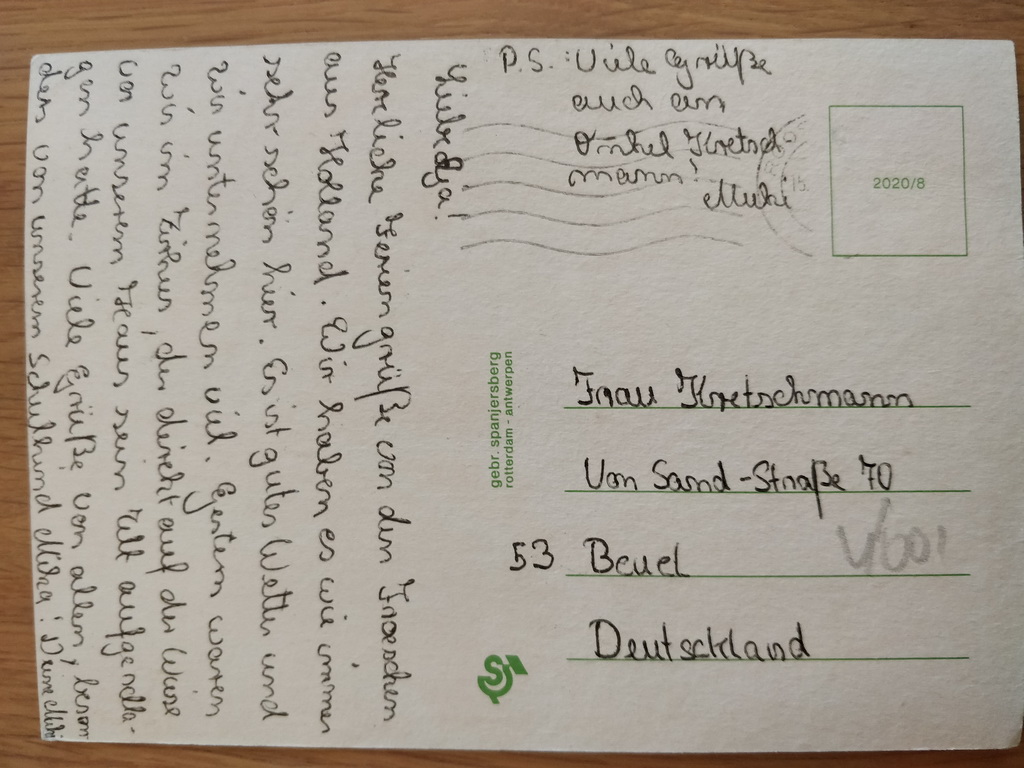 Liebe Oja!
Herzliche Feriengrüße von den Froeschen
aus Holland. Wir haben es wie immer
sehr schön hier. Es ist gutes Wetter und
wir unternehmen viel. Gestern waren
wir im Zirkus, der direkt auf der Wiese
vor unserem Haus sein Zelt aufgeschla-
gen hatte. Viele Grüße von allen, beson
ders von unserem Schulkind Mika! Deine Muki
P.S.: Viele Grüße
auch an
Onkel Kretsch-
mann!
Muki
2020/8
gebr. spanjersberg
rotterdam - antwerpen
Frau Kretschmann
Von Sand-Straße 70
53 Beuel
Deutschland
V/601